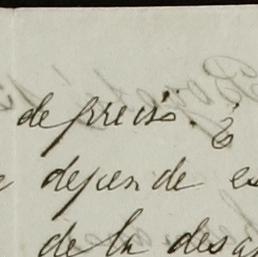 de preciso. ¿
depende es
de la desa